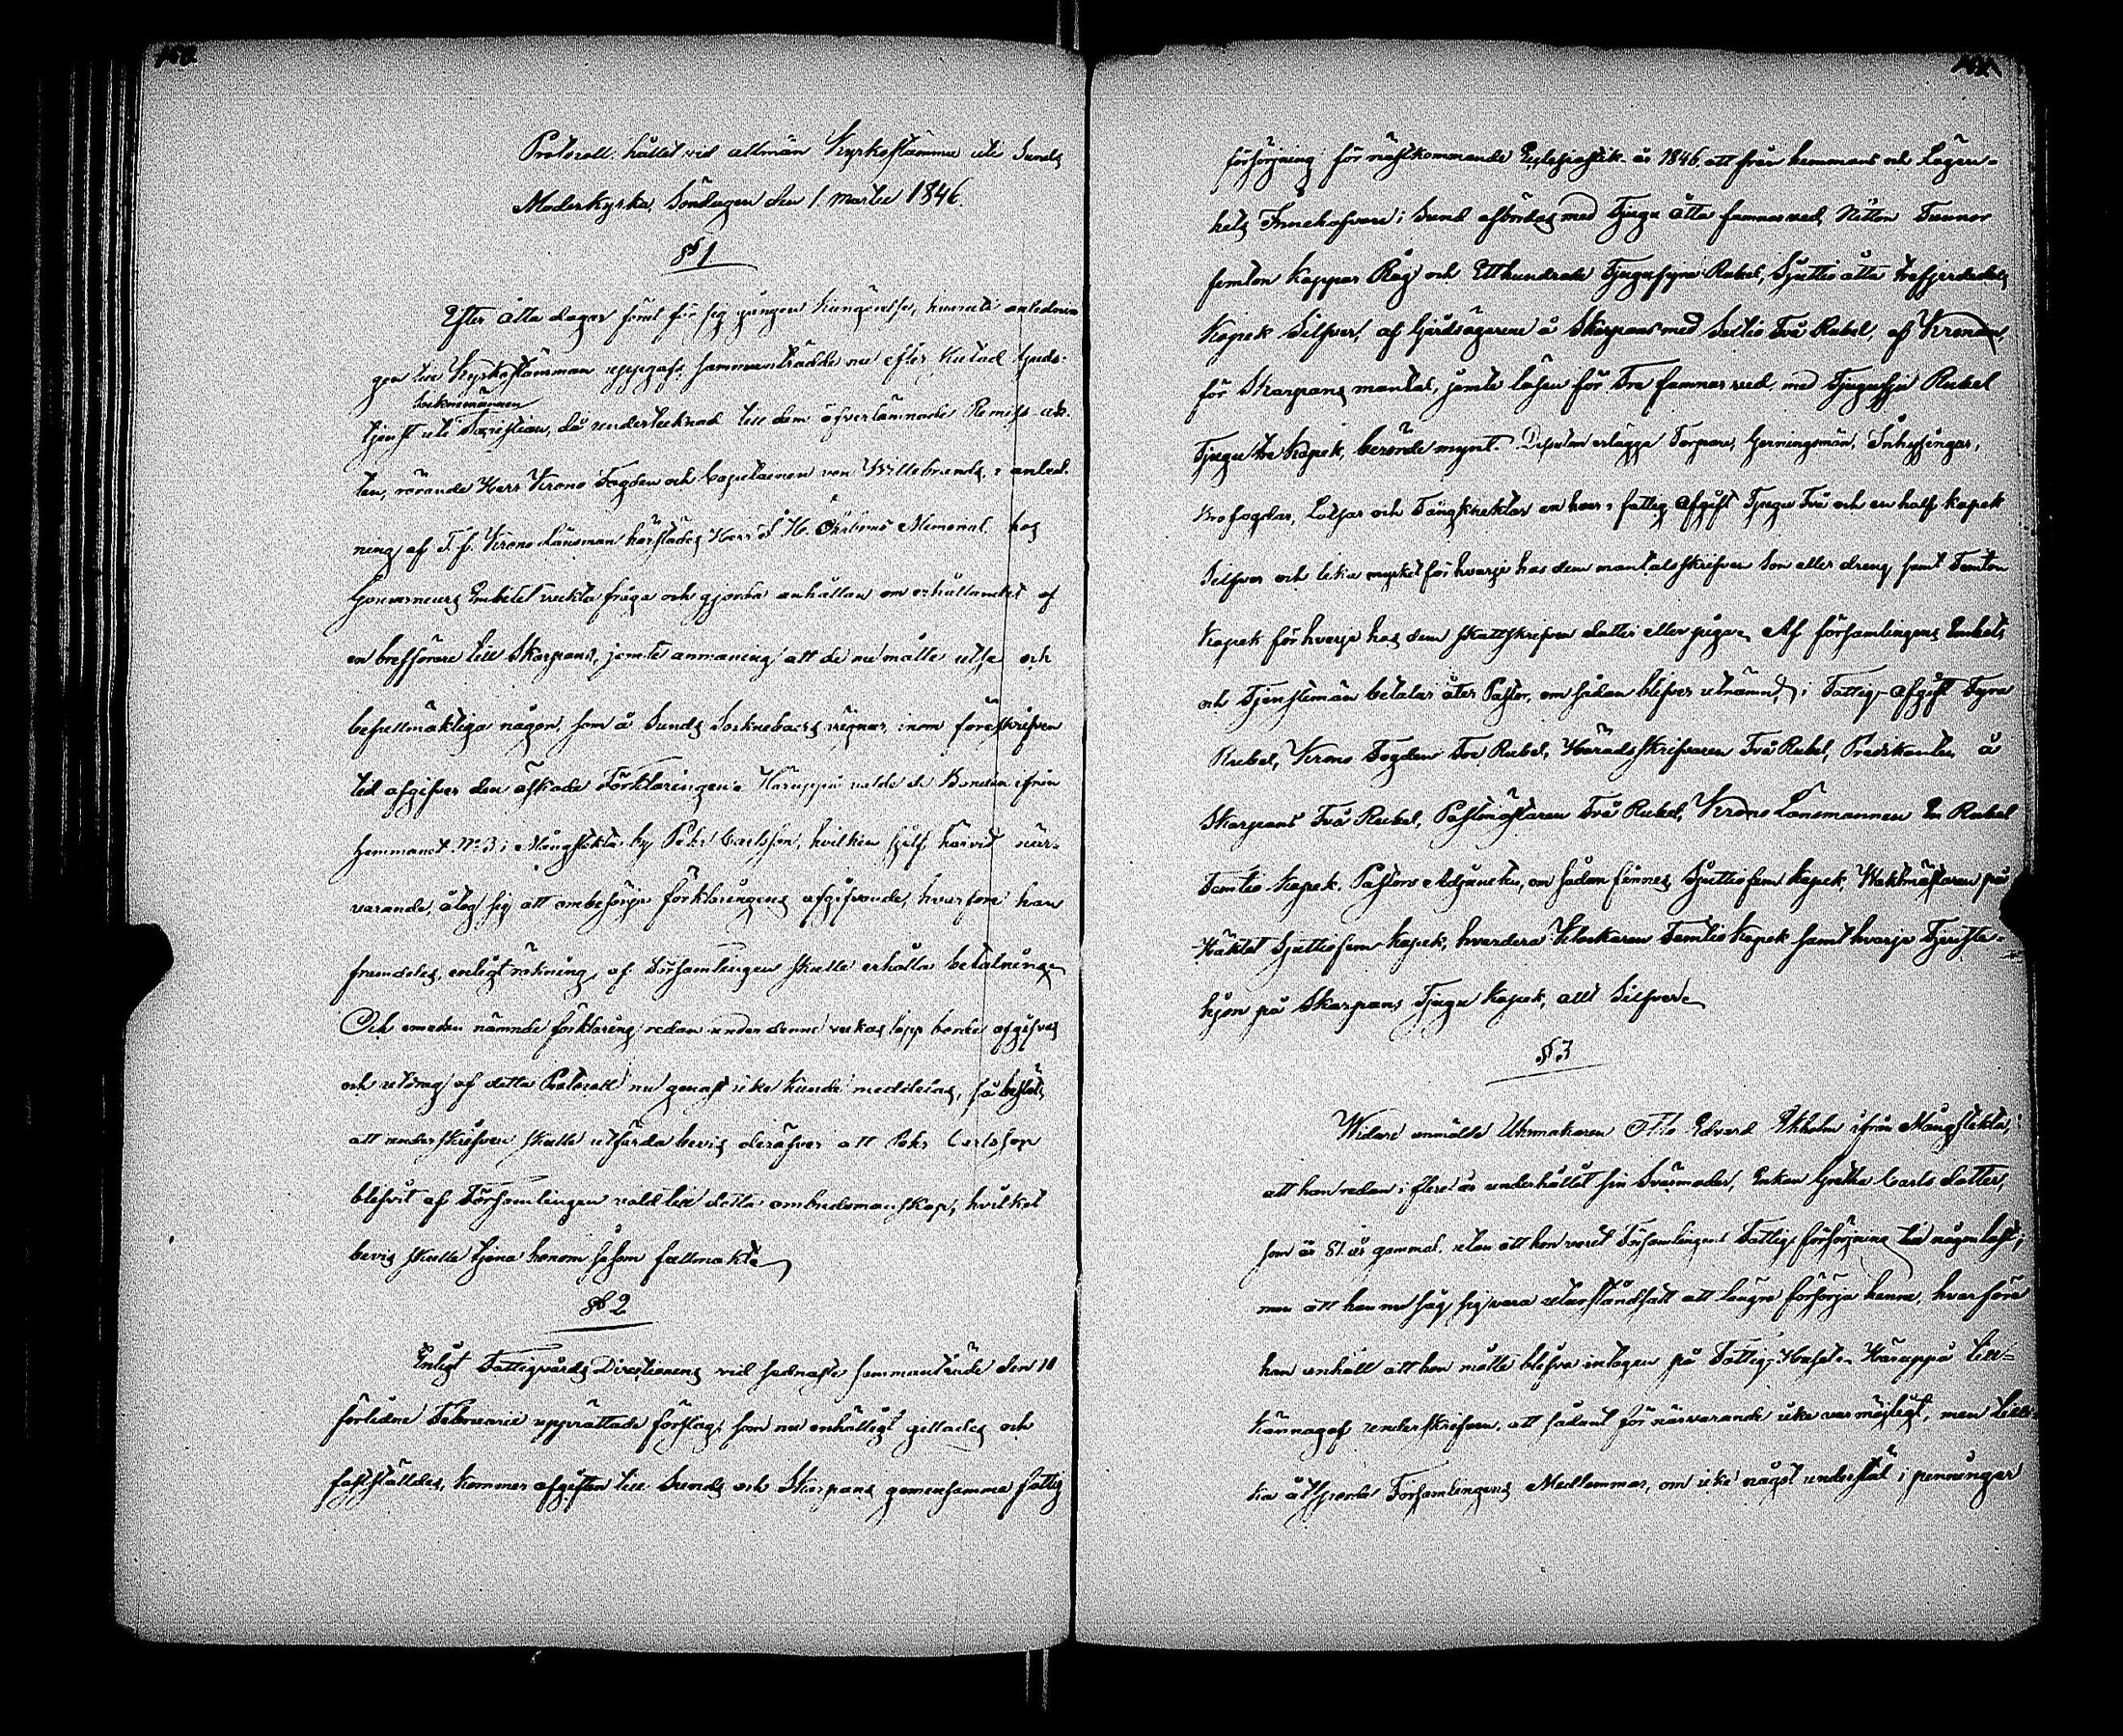 Protocoll, hållet vid allmän Kyrkostämma uti Sunds
Moderkyrka, Söndagen den 1 martii 1846.
§ 1
Efter åtta dagar förut för sig gången kungörelse, hvaruti anlednin-
gen till Kyrkostämman uppgafs, sammanträdde nu efter slutad Guds-
Socknemännen
tjenst uti Sacristian, då undertecknad till dem öfverlämnade Remiss-ak-
ten, rörande Herr Krono Fogden och Capitainen von Willebrands, i anled-
ning af T. f. Krono Länsman härstädes Herr Öhrboms Memorial hos
Gouverneurs Embetet väckta fråga och gjorda anhållan om erhållandet af
en brefförare till Skarpans, jemte anmaning att de nu måtte utse och
befullmäktiga någon, som å Sunds Sockneboers vägnar, inom föreskrifven
tid afgifver den äskade Förklaringen. Häruppå valde de Bonden ifrån
hemmanet Nº 3 i Mångstekta by Pehr Carlsson, hvilken sjelf härvid när-
varande, åtog sig att ombesörja förklaringens afgifvande, hvarföre han
framdeles, enligt räkning, af Församlingen skulle erhålla betalning.
Och emedan nämnde förklaring redan under denna veckas lopp borde afgifvas
och utdrag af detta Protocoll nu genast icke kunde meddelas, så beslöts
att underskrifven skulle utfärda bevis deröfver att Pehr Carlsson
blifvit af Församlingen vald till detta ombudsmanskap, hvilket
bevis skulle tjena honom såsom fullmakt.
§ 2
Enligt Fattigvårds Directionens vid sednaste sammanträde den 10
förlidne Februarii upprättade förslag, som nu enhälligt gillades och
fastställdes, kommer afgiften till Sunds och Skarpans gemensamma fattig
försörjning för nästkommande Ecclesiastik-år 1846 att från hemmans och Lägen-
hets Innehafvare i Sund afbördas med Tjugu åtta famnar ved, Nitton Tunnor
femton Kappar Råg och Etthundrade Tjugufyra Rubel, Sjuttio åtta trefjerdedels
Kopek Silfver, af Gårdsägarene å Skarpans med Sextio Två Rubel, af Kronan,
för Skarpans mantal, jemte lösen för Tre famnar ved, med Tjugufyra Rubel
Tjugu tre Kopek, berörde mynt. Dessutan erlägga Torpare, Gerningsmän, Inhysingar,
Brofogdar, Lotsar och Fångknektar en hvar i fattig Afgift Tjugu Två och en half kopek
Silfver och lika mycket för hvarje hos dem mantalsskrifven Son eller dreng samt Femton
Kopek för hvarje hos dem skattskrifven dotter eller piga. Af församlingens Embets
och Tjenstemän betalar åter Pastor, om sådan blifver utnämnd, i Fattig-afgift Fyra
Rubel, Krono Fogden Tre Rubel, Häradsskrifvaren Två Rubel, Predikanten å
Skarpans Två Rubel, Postmästaren Två Rubel, Krono Länsmannen En Rubel
Femtio Kopek. Pastors Adjuncten, om sådan finnes Sjuttiofem kopek, Waktmästaren på
Häktet Sjuttiofem Kopek, hvardera Klockaren Femtio Kopek samt hvarje Tjenste-
hjon på Skarpans Tjugu Kopek, allt Silfver.
§ 3
Widare anmälte Urmakaren Otto Edvard Ekholm ifrån Mångstekta,
att han redan i flere år underhållit sin Svärmoder, Enkan Gretha Carls dotter,
som är 81 år gammal, utan att hon varit Församlingens Fattig-försörjning till någon last,
men att han nu såg sig vara utur ståndsatt att längre försörja henne, hvarföre
han anhöll att hon måtte blifva intagen på Fattig-Huset. Häruppå till-
kännagaf underskrifven, att sådant för närvarande icke var möjligt, men till-
ka åtsporde Församlingens Medlemmar, om icke något understöd i penningar